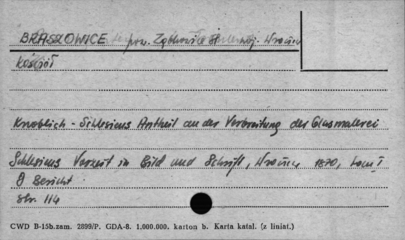 BRASZOWICE pow. Ząbkowice Śl. woj. Wrocław
kościół
Knoblich - Schlesiens Antheil an der Verbreitung der Glasmalerei
Schlesiens Vorzeit in Bild und Schrift, Wrocław 1870, tom I
9 Bericht
str. 114
CWD B-15b.zam. 2899/P. GDA-8. 1.000.000. karton b. Karta katal. (z liniat.)